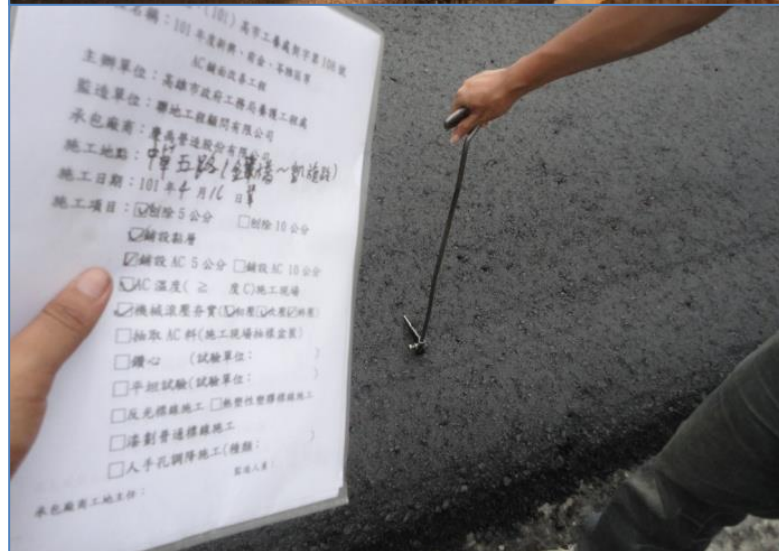 (101)高市工養處契字第108號
名稱：101年度新興、前金、苓雅區等
AC鋪面改善工程
主辦單位：高雄市政府工務局養護工程處
監造單位：聯地工程顧問有限公司
承包廠商：營造股份有限公司
施工地點：五路(～凱旋路)
施工日期：101年4月16日
施工項目：☑刨除5公分 □刨除10公分
☑鋪設黏層
☑鋪設AC 5公分 □鋪設AC 10公分
☑AC溫度(≥ 度C)施工現場
☑機械滾壓夯實(☑初壓☑次壓☑終壓)
□抽取AC料(施工現場抽樣盒裝)
□鑽心 (試驗單位： )
□平坦試驗(試驗單位： )
□反光標線施工 □熱塑性塑膠標線施工
□漆劃普通標線施工
□人手孔調降施工(種類： )
承包廠商工地主任： 監造人員：